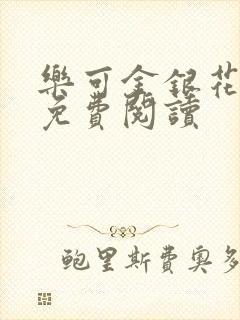 樂可金銀花
免費閱讀
鮑里斯費奧多